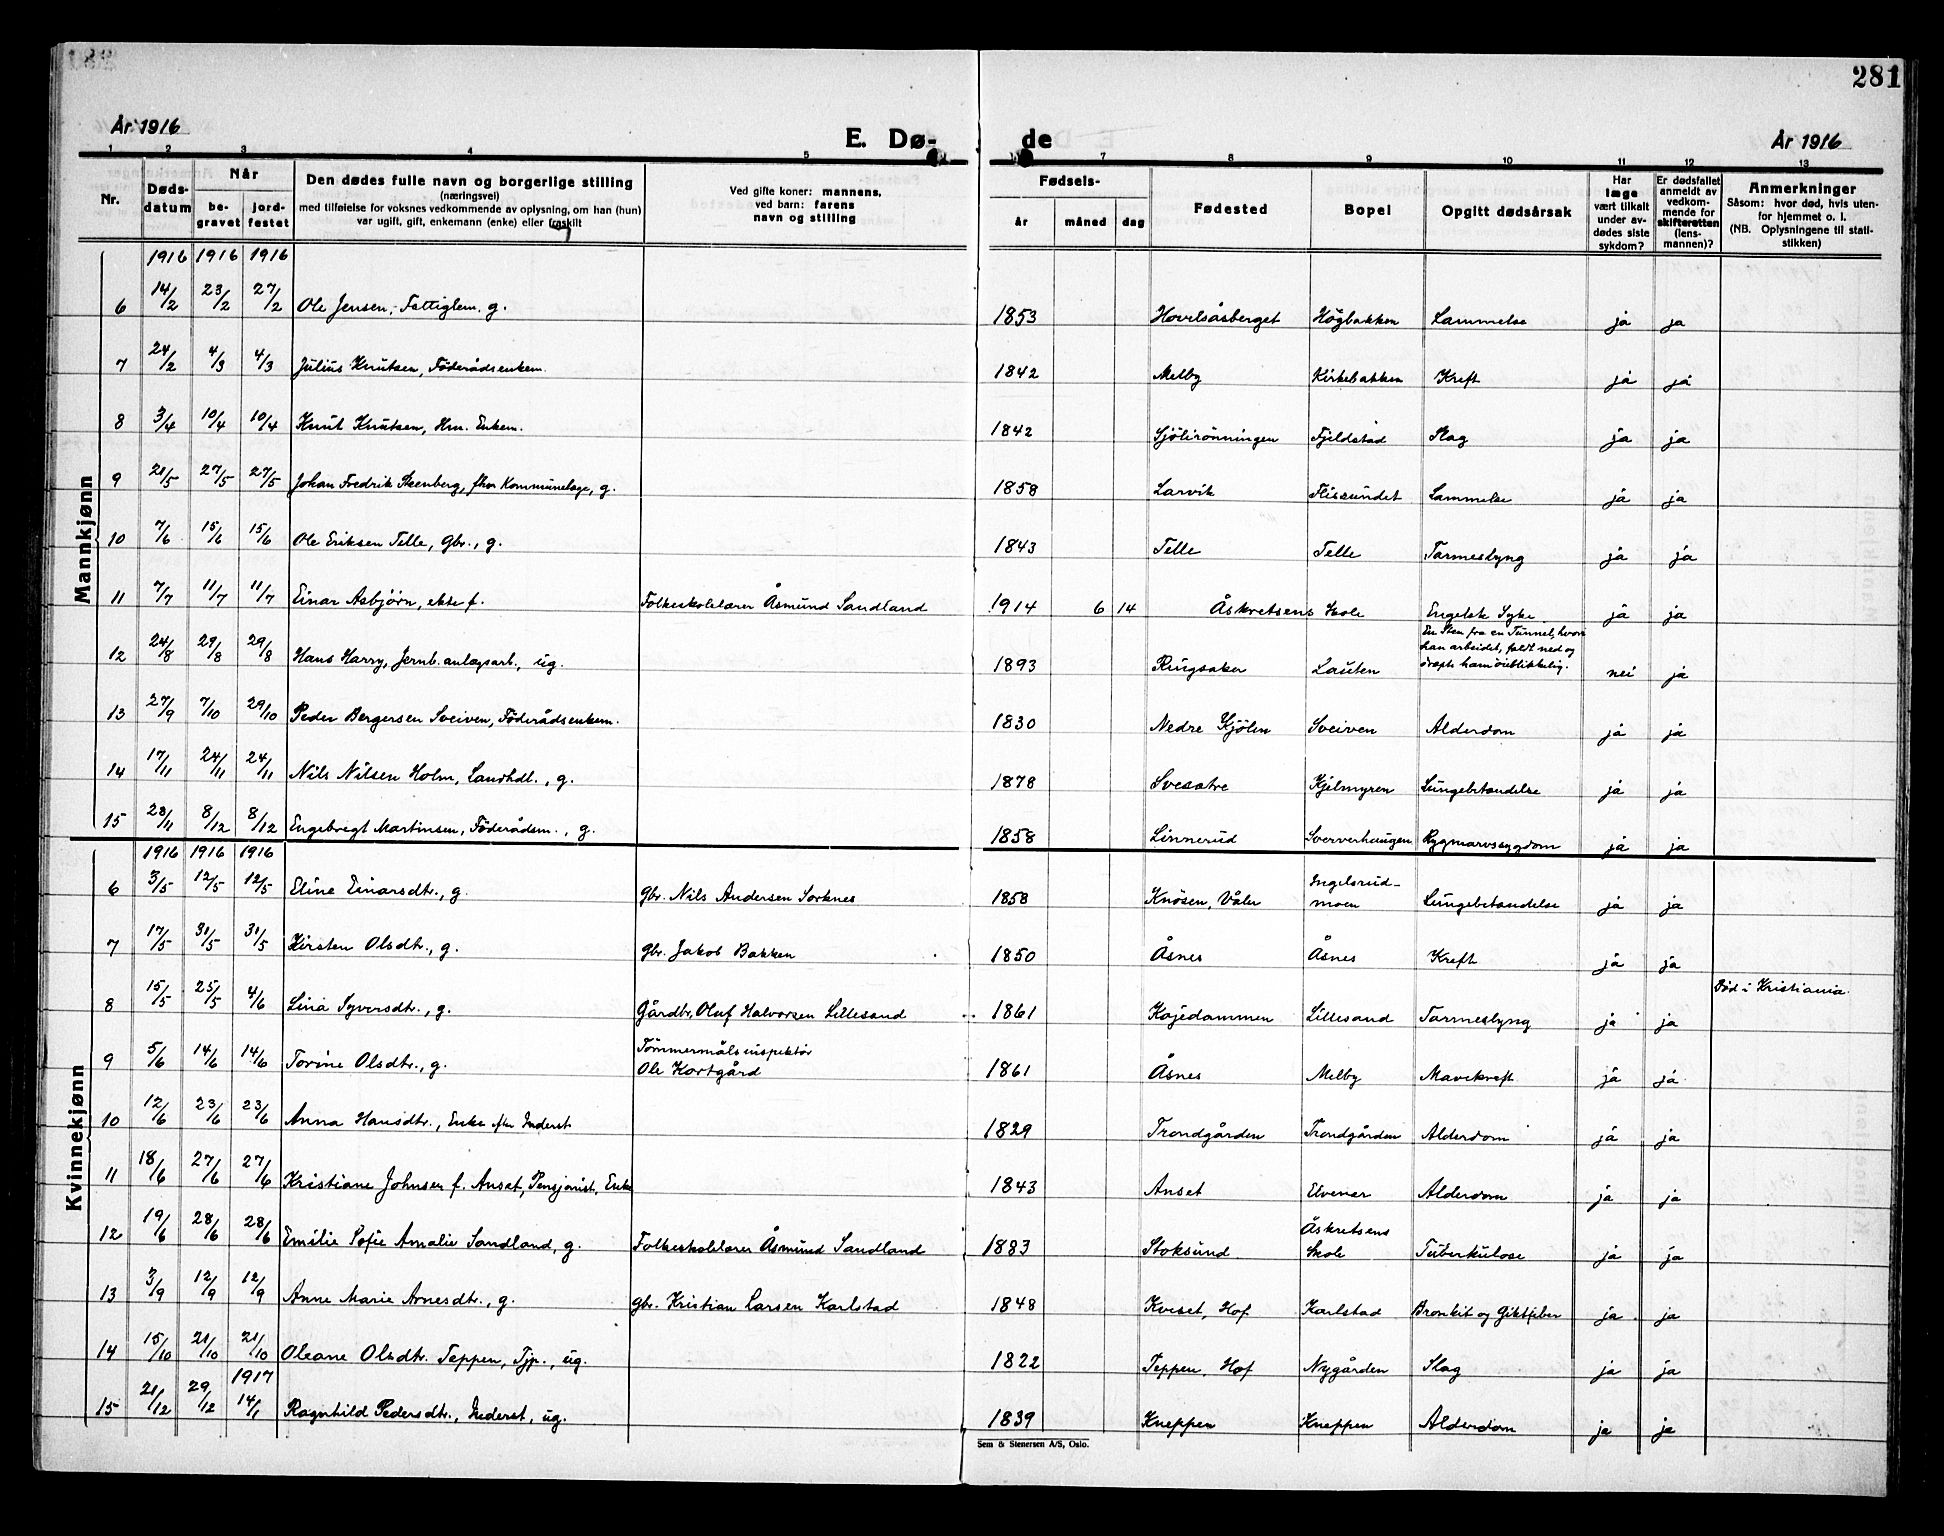 281
År 1916
E. Dø-
de
År 1916
1 2 3 4 5 7 8 9 10 11 12 13
Nr.
Døds-
datum
Når
be-
gravet
jord-
festet
Den dødes fulle navn og borgerlige stilling
(næringsvei)
med tilføielse for voksnes vedkommende av oplysning, om han (hun)
var ugift, gift, enkemann (enke) eller fraskilt
Ved gifte koner: mannens,
ved barn: farens
navn og stilling
Fødsels-
år måned dag
Fødested
Bopel
Opgitt dødsårsak
Har
læge
vært tilkalt
under av-
dødes siste
sykdom?
Er dødsfallet
anmeldt av
vedkom-
mende for
skifteretten
(lens-
mannen)?
Anmerkninger
Såsom: hvor død, hvis uten-
for hjemmet o. l.
(NB. Oplysningene til stati-
stikken)
Mannkjønn
1916 1916 1916
6 14/2 23/2 27/2 Ole Jensen, Fattiglem. g. 1853 Hovelsåsberget Högbakken Lammelse ja ja
7 24/2 4/3 4/3 Julius Knutsen, Föderådsenkem. 1842 Melby Kirkebakken Kreft ja ja
8 3/4 10/4 10/4 Knut Knutsen, Hm. Enkem. 1842 Sjölirönningen Fjeldstad Slag ja ja
9 21/5 27/5 27/5 Johan Fredrik Steenberg, fhv Kommunelæge, g. 1858 Larvik Flisundet Lammelse ja ja
10 7/6 15/6 15/6 Ole Eriksen Telle, Gbr., g. 1843 Telle Telle Tarmeslyng ja ja
11 7/7 11/7 11/7 Einar Asbjørn, ekte f. Folkeskolelærer Åsmund Sandland 1914 6 14 Åskretsens Skole Engelsk Syke ja ja
12 24/8 29/8 29/8 Hans Harry, Jernb.anlægsarb., ug. 1893 Ringsaker Lauten En Sten fra en Tunnel, hvori
han arbeidet, faldt ned og
dræpte ham öieblikkelig. nei ja
13 27/9 7/10 29/10 Peder Bergersen Sveiven, Föderådsenkem. 1830 Nedre Kjölen Sveiven Alderdom ja ja
14 17/11 24/11 24/11 Nils Nilsen Holm, Landhdl., g. 1878 Svesatre Kjelmyren Lungebetændelse ja ja
15 28/11 8/12 8/12 Engebregt Martinsen, Föderådsm., g. 1858 Linnerud Sververhaugen Rygmarvssygdom ja ja
Kvinnekjønn
1916 1916 1916
6 3/5 12/5 12/5 Eline Einarsdtr., g. gbr. Nils Andersen Sorknes 1858 Knösen, Våler Ingelsrud-
moen Lungebetændelse ja ja
7 17/5 31/5 31/5 Kirsten Olsdtr., g. gbr. Jakob Bakken 1850 Åsnes Åsnes Kreft ja ja
8 15/5 25/5 4/6 Lina Syversdtr., g. Gårdbr, Oluf Halvorsen Lillesand 1861 Kajedammen Lillesand Tarmeslyng ja ja Död i Kristiania.
9 5/6 14/6 14/6 Torine Olsdtr., g. Tømmermålsinspektør
Ole Kortgård 1861 Åsnes Melby Mavekreft ja ja
10 12/6 23/6 23/6 Anna Hansdtr., Enke efter Inderst 1829 Trondgården Trondgården Alderdom ja ja
11 18/6 27/6 27/6 Kristiane Johnsen f. Anset, Pensjonist, Enke 1843 Anset Elvenes Alderdom ja ja
12 19/6 28/6 28/6 Emilie Sofie Amalie Sandland, g. Folkeskolelærer Åsmund Sandland 1883 Stoksund Åskretsens
Skole Tuberkulose ja ja
13 3/9 12/9 12/9 Anne Marie Arnesdtr., g. gbr. Kristian Larsen Karlstad 1848 Kveset, Hof Karlstad Bronkit og Giktfeber ja ja
14 15/10 21/10 21/10 Oleane Olsdtr. Teppen, Tjp., ug. 1822 Teppen, Hof Nygården Slag ja ja
1917
15 21/12 29/12 14/1 Ragnhild Pedersdtr., Inderst, ug. 1839 Kneppen Kneppen Alderdom ja ja
Sem & Stenersen A/S, Oslo.